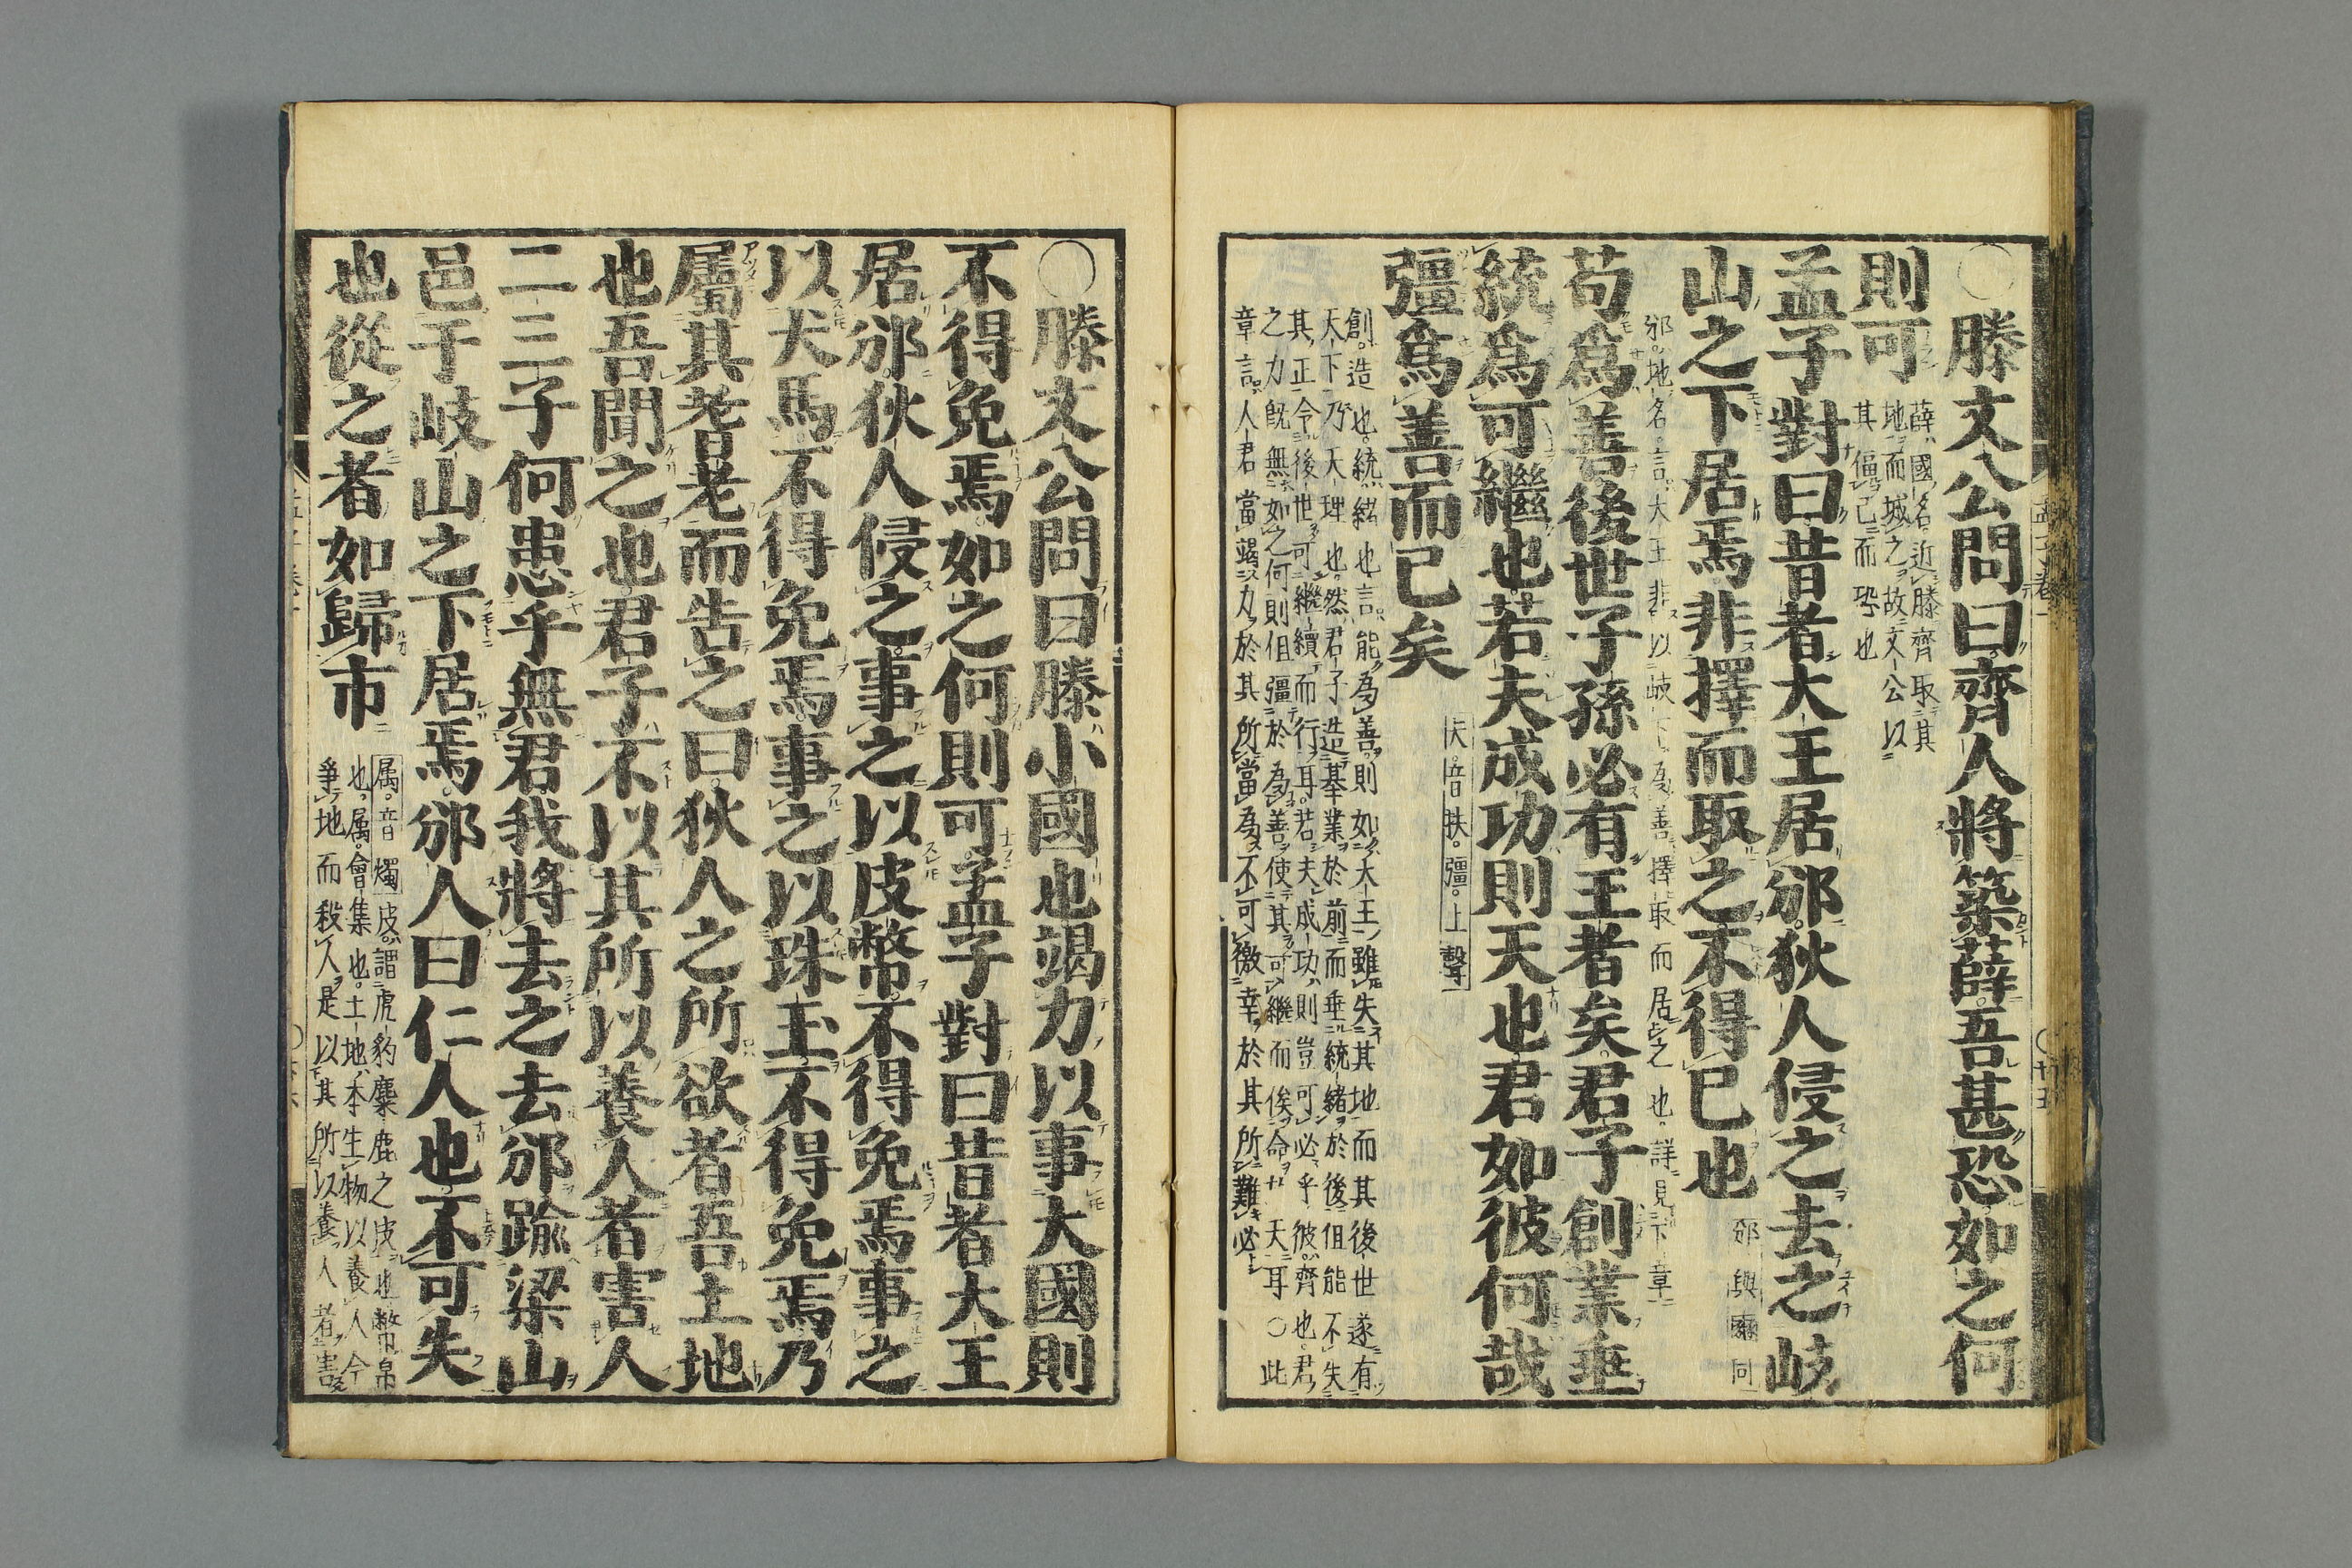 ○滕文公問曰齊人將築薛吾甚恐如之何
則可
薛國名近滕齊取其
地而城之故文公以
其偪己而恐也
孟子對曰昔者大王居邠狄人侵之去之岐
山之下居焉非擇而取之不得已也
邠與豳同
邠地名言大王非以岐下為善擇取而居之也詳見下章
苟爲善後世子孫必有王者矣君子創業垂
統爲可繼也若夫成功則天也君如彼何哉
彊爲善而已矣
夫音扶彊上聲
創造也統緒也言能為善則如大王雖失其地而其後世遂有
天下乃天理也然君子造基業於前而垂統緒於後但能不失
其正令後世可繼續而行耳若夫成功則豈可必乎彼齊也君
之力既無如之何則但彊於為善使其可繼而俟命於天耳○此
章言人君當竭力於其所當為不可徼幸於其所難必
○滕文公問曰滕小國也竭力以事大國則
不得免焉如之何則可孟子對曰昔者大王
居邠狄人侵之事之以皮幣不得免焉事之
以犬馬不得免焉事之以珠玉不得免焉乃
屬其耆老而告之曰狄人之所欲者吾土地
也吾聞之也君子不以其所以養人者害人
二三子何患乎無君我將去之去邠踰梁山
邑于岐山之下居焉邠人曰仁人也不可失
也從之者如歸市
属音燭皮謂虎豹麋鹿之皮也幣帛
也属會集也土地本生物以養人今
爭地而殺人是以其所以養人者害